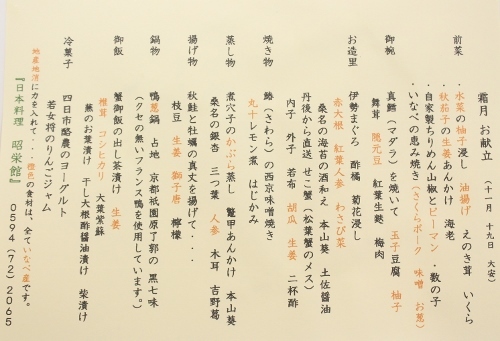 霜月 お献立 (十一月 十九日 大安)
前菜 水菜の柚子浸し 油揚げ えのき茸 いくら
・秋茄子の生姜あんかけ 海老
・自家製ちりめん山椒とピーマン ・数の子
・いなべの恵み焼き(さくらポーク 味噌 お葱)
御椀 真鱈(マダラ)を焼いて 玉子豆腐 柚子
舞茸 隠元豆 紅葉生麩 梅肉
お造里 伊勢まぐろ 酢橘 菊花浸し
赤大根 紅葉人参 わさび菜
桑名の海苔の酒和え 本山葵 土佐醤油
丹後から直送 せこ蟹(松葉蟹のメス)
内子 外子 若布 胡瓜 生姜 二杯酢
焼き物 鰆(さわら)の西京味噌焼き
丸十レモン煮 はじかみ
蒸し物 煮穴子のかぶら蒸し 鼈甲あんかけ 本山葵
桑名の銀杏 三つ葉 人参 木耳 吉野葛
揚げ物 秋鮭と牡蠣の真丈を揚げて・・・
枝豆 生姜 獅子唐 檸檬
鍋物 鴨葱鍋 占地 京都祇園原了郭の黒七味
(クセの無いフランス鴨を使用しています。)
御飯 蟹御飯の出し茶漬け 生姜
椎茸 コシヒカリ 大葉紫蘇
蕪のお葉漬け 干し大根酢醤油漬け 柴漬け
冷菓子 四日市酪農のヨーグルト
若女将のりんごジャム
地産地消に力を入れて・・・橙色の食材は、全ていなべ産です。
『日本料理 昭栄館』 0594(72)2065